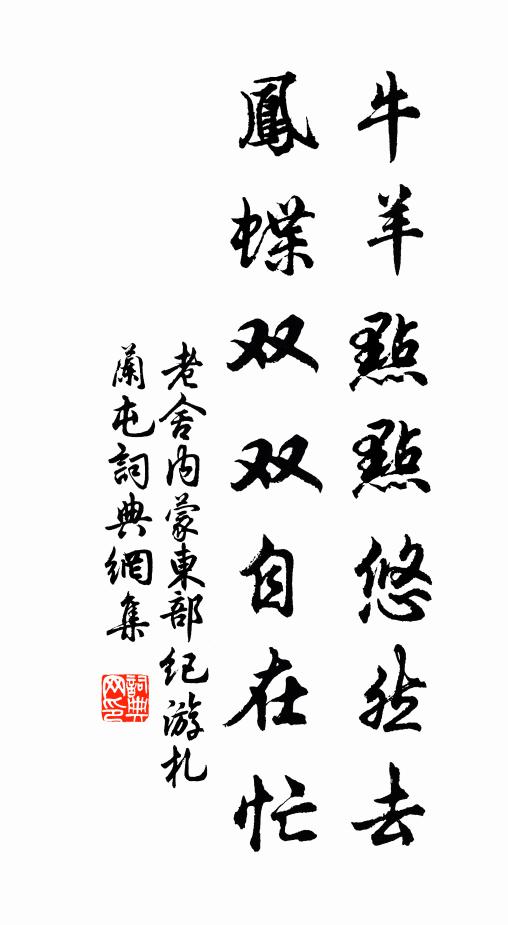 牛羊點點悠然去
鳳蝶双双自在忙
老舍内蒙東部纪游札
蘭屯詞典網集
詞典网印